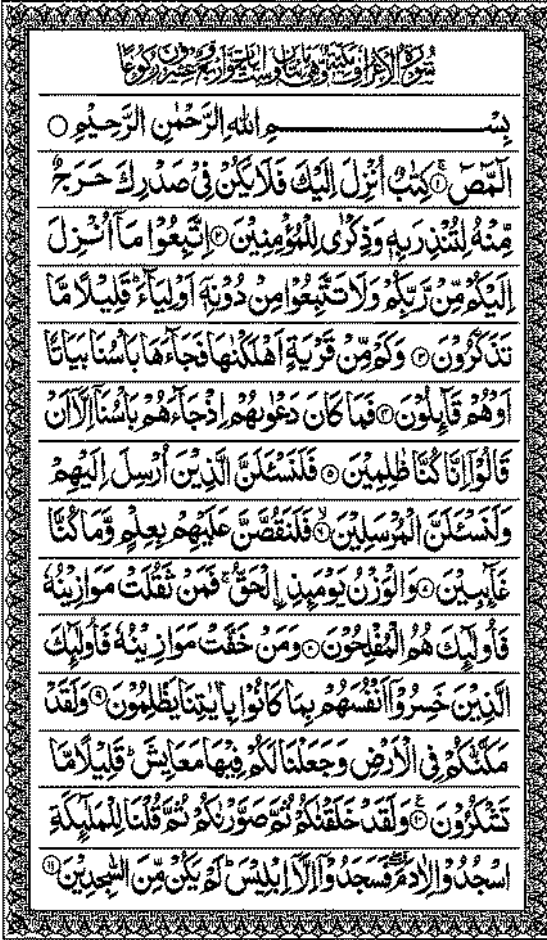 سُوْرَةُ الْاَعْرَافِ مَكِّيَّةٌ وَّهِيَ مِائَتَانِ وَسِتُّ اٰيَاتٍ وَّاَرْبَعٌ وَّعِشْرُوْنَ رُكُوْعًا
بِسْمِ اللهِ الرَّحْمٰنِ الرَّحِيْمِ ○
الٓمّٓصٓ ۚ﴿۱﴾ كِتٰبٌ اُنْزِلَ اِلَيْكَ فَلَا يَكُنْ فِيْ صَدْرِكَ حَرَجٌ
مِّنْهُ لِتُنْذِرَ بِهٖ وَذِكْرٰى لِلْمُؤْمِنِيْنَ ﴿۲﴾ اِتَّبِعُوْا مَاۤ اُنْزِلَ
اِلَيْكُمْ مِّنْ رَّبِّكُمْ وَلَا تَتَّبِعُوْا مِنْ دُوْنِهٖۤ اَوْلِيَآءَ ؕ قَلِيْلًا مَّا
تَذَكَّرُوْنَ ﴿۳﴾ وَكَمْ مِّنْ قَرْيَةٍ اَهْلَكْنٰهَا فَجَآءَهَا بَاْسُنَا بَيَاتًا
اَوْ هُمْ قَآئِلُوْنَ ﴿۴﴾ فَمَا كَانَ دَعْوٰىهُمْ اِذْ جَآءَهُمْ بَاْسُنَاۤ اِلَّاۤ اَنْ
قَالُوْۤا اِنَّا كُنَّا ظٰلِمِيْنَ ﴿۵﴾ فَلَنَسْـَٔلَنَّ الَّذِيْنَ اُرْسِلَ اِلَيْهِمْ
وَلَنَسْـَٔلَنَّ الْمُرْسَلِيْنَ ۙ﴿۶﴾ فَلَنَقُصَّنَّ عَلَيْهِمْ بِعِلْمٍ وَّمَا كُنَّا
غَآئِبِيْنَ ﴿۷﴾ وَالْوَزْنُ يَوْمَئِذِ ۨالْحَقُّ ۚ فَمَنْ ثَقُلَتْ مَوَازِيْنُهٗ
فَاُولٰٓئِكَ هُمُ الْمُفْلِحُوْنَ ﴿۸﴾ وَمَنْ خَفَّتْ مَوَازِيْنُهٗ فَاُولٰٓئِكَ
الَّذِيْنَ خَسِرُوْۤا اَنْفُسَهُمْ بِمَا كَانُوْا بِاٰيٰتِنَا يَظْلِمُوْنَ ﴿۹﴾ وَلَقَدْ
مَكَّنّٰكُمْ فِي الْاَرْضِ وَجَعَلْنَا لَكُمْ فِيْهَا مَعَايِشَ ؕ قَلِيْلًا مَّا
تَشْكُرُوْنَ ﴿۱۰﴾ وَلَقَدْ خَلَقْنٰكُمْ ثُمَّ صَوَّرْنٰكُمْ ثُمَّ قُلْنَا لِلْمَلٰٓئِكَةِ
اسْجُدُوْا لِاٰدَمَ ۖ فَسَجَدُوْۤا اِلَّاۤ اِبْلِيْسَ ؕ لَمْ يَكُنْ مِّنَ السّٰجِدِيْنَ ﴿۱۱﴾